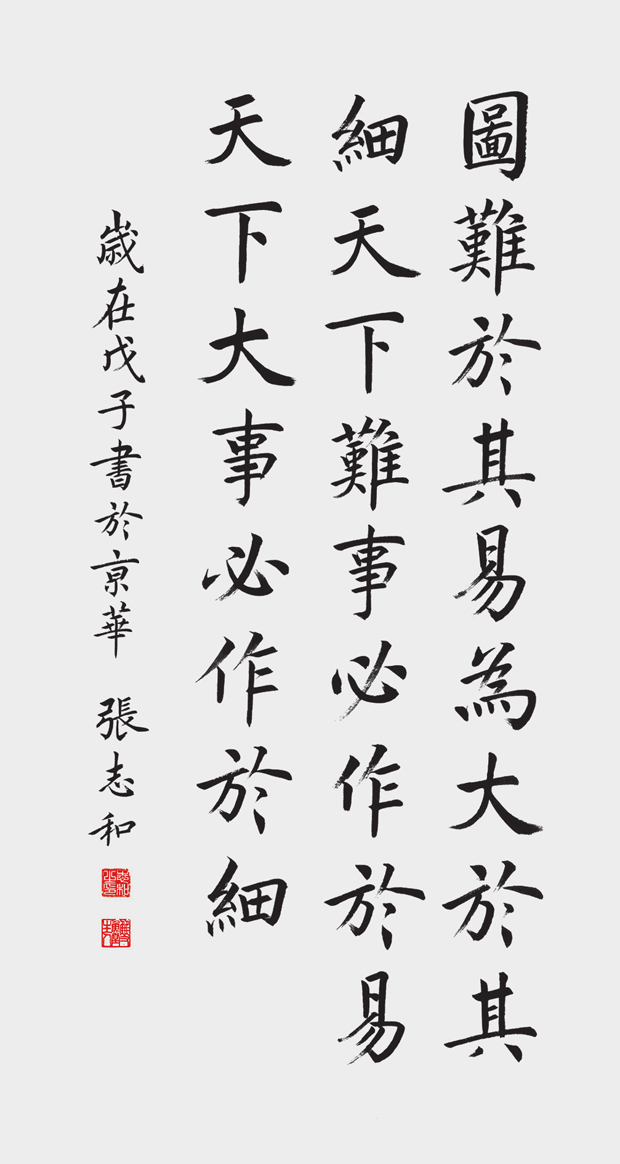 圖難於其易為大於其
細天下難事必作於易
天下大事必作於細
歲在戊子書於京華 張志和